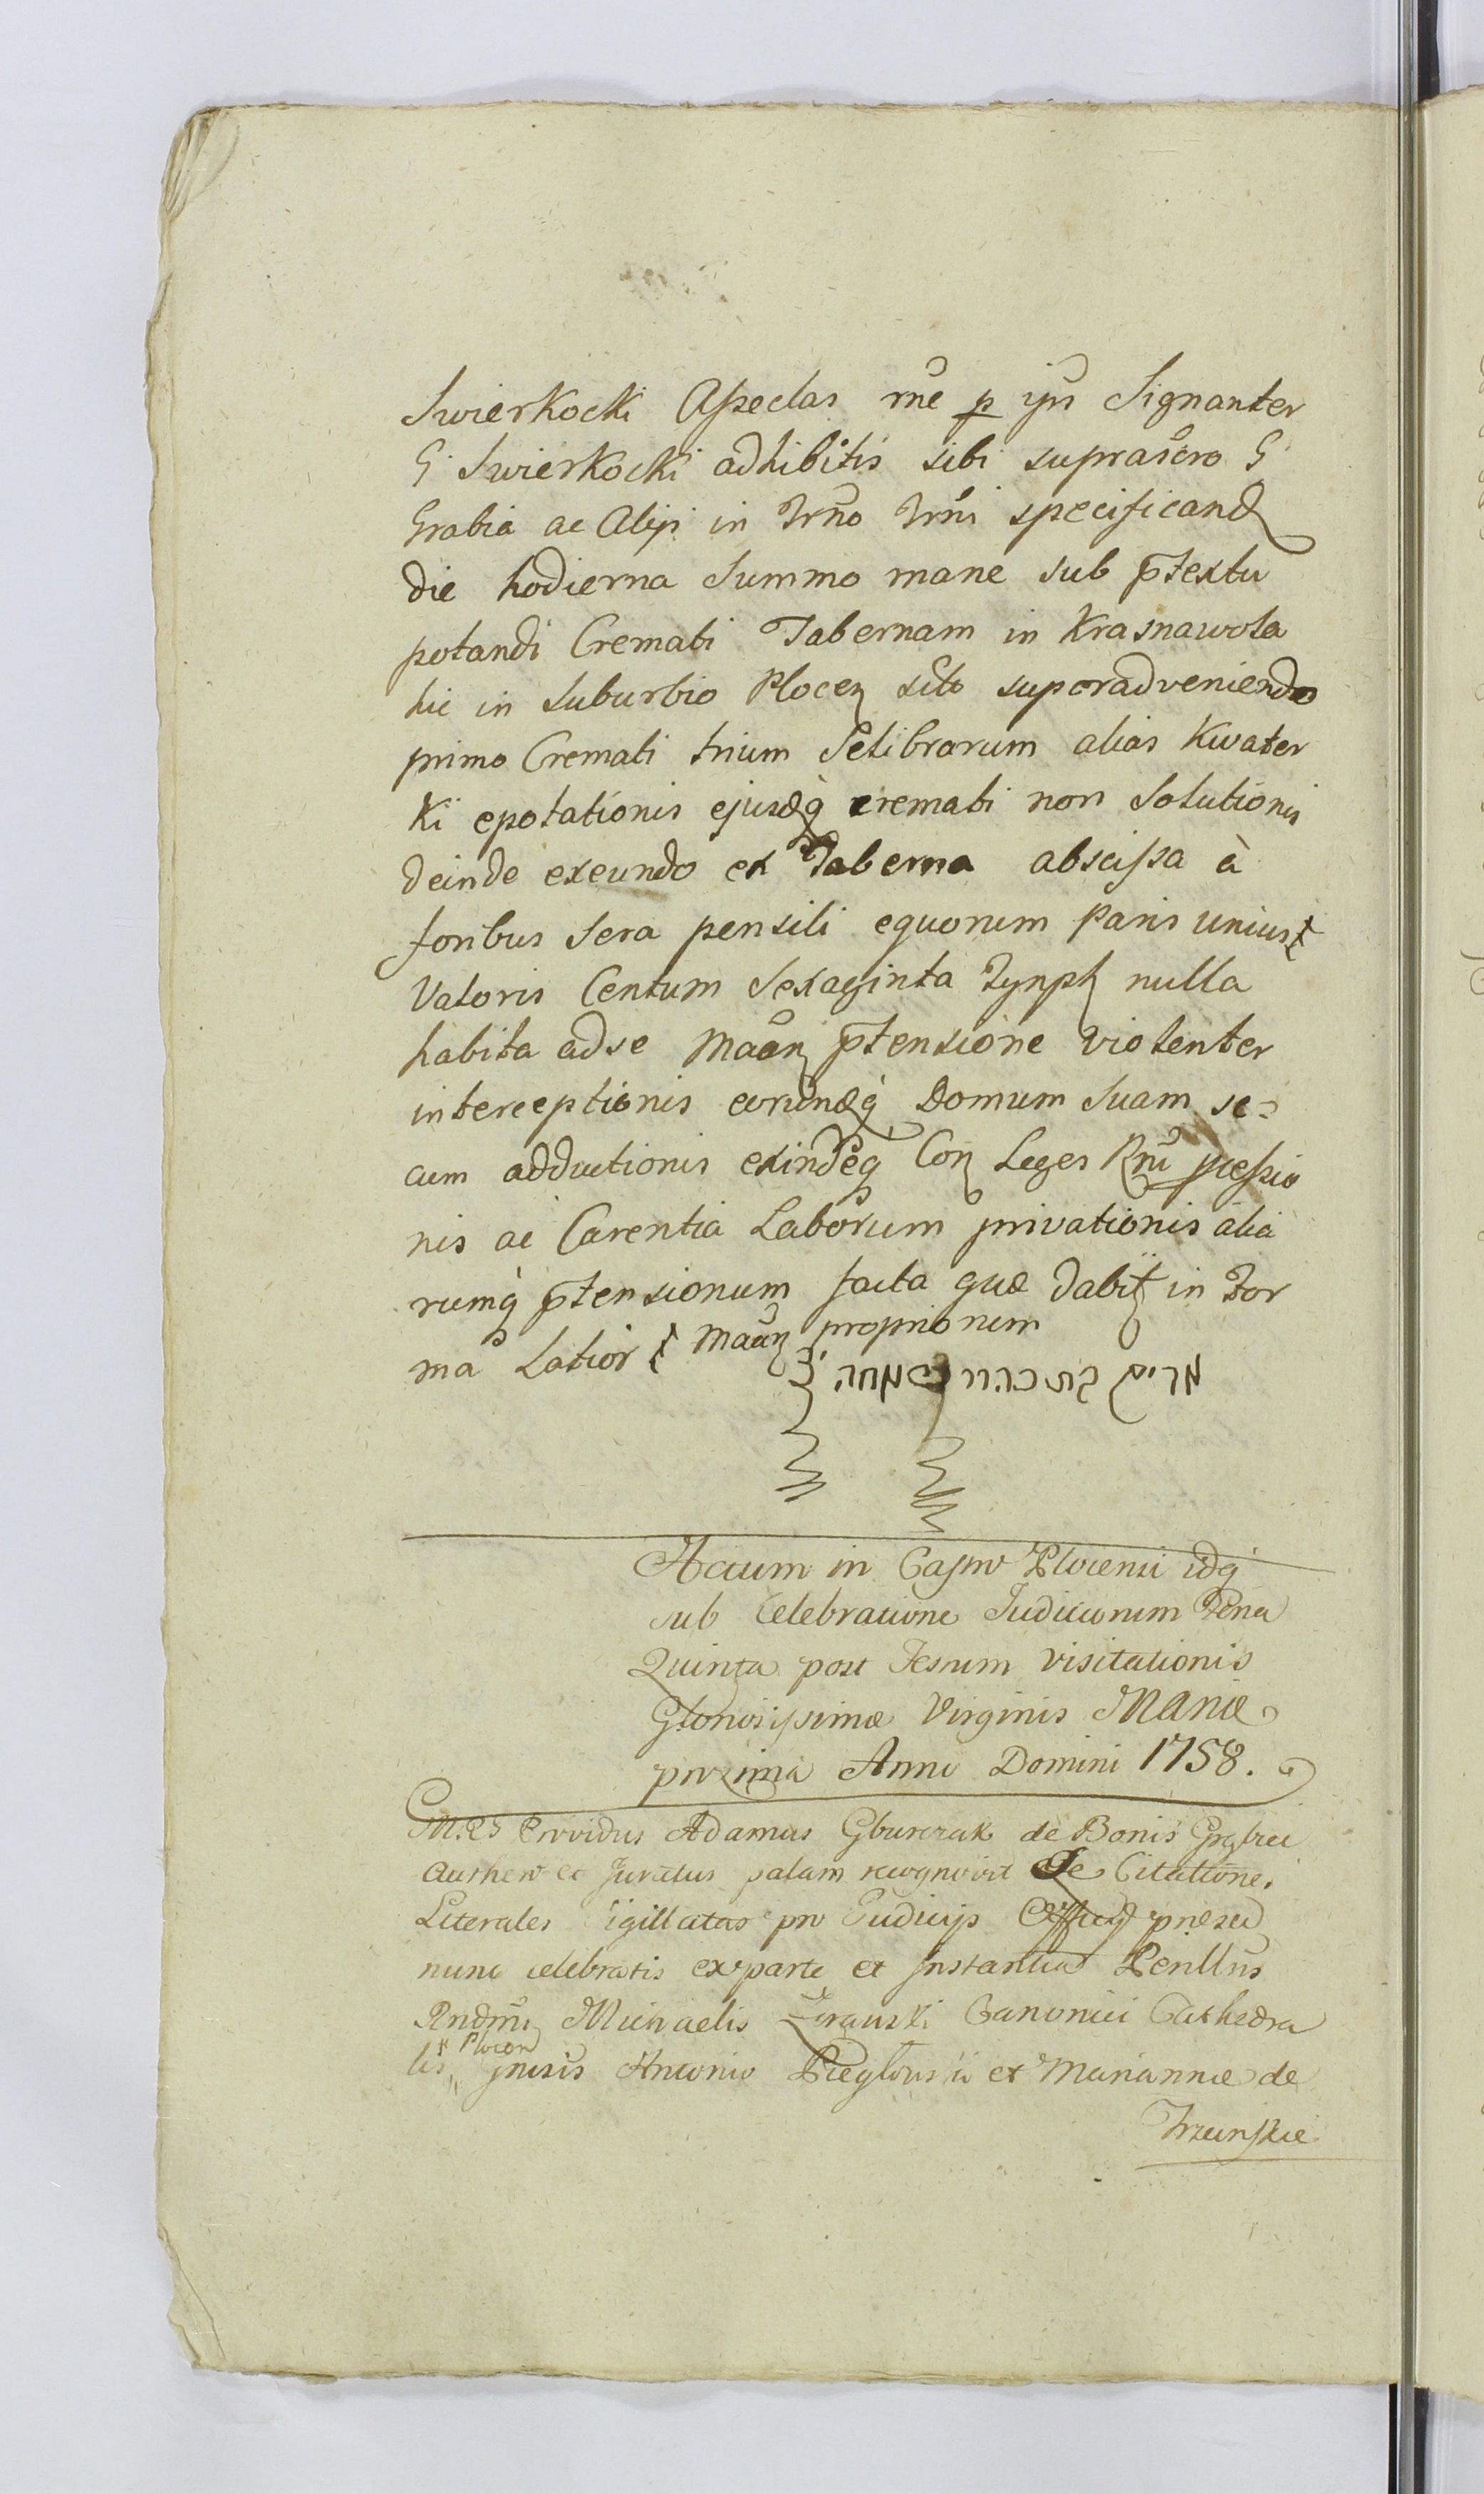 Swierkocki Aspectas rne p ijs Signanter
G Swierkocki adhibitis sibi suprascro G
Grabia ac Alijs in Trno Trni specificand
die hodierna Summo mane sub ptextu
potandi Cremati Tabernam in Krasnawola
hic in Suburbio Plocen sito superadveniendo
primo Cremati trium Selibrarum alias Kwater
ki epotationis ejusdq cremati non Solutionis
deinde exeundo ex Taberna abscissa à
foribus Sera pensili equorum Paris unius
Valoris Centum Sexaginta Tynph nulla
habita adse Maan ptensione violenter
interceptionis eorundq Domum Suam se=
cum adductionis exindeq Con Leges Rni
nis ac Carentia Laborum privationis alia
rumq ptensionum facta quæ dabit in For
ma Latior Maan propriorum
מרים בת כהר שמחה
Actum in Castro Plocensi idq
sub Celebratione Judiciorum Feria
Quinta post Festum Visitationis
Gloriosissimæ Virginis MARIÆ
proxima Anno Domini 1758.
Providus Adamus Gburczak de Bonis
Authen et Juratus palam recognovit Se Citatione
Literales Sigillatas pro Judicijs Officij præsen
nunc celebratis ex parte et Instantia Perillus
Rndmi Michaelis Canonici Cathedra
lis Plocen Gnosis Antonio et Mariannæ de